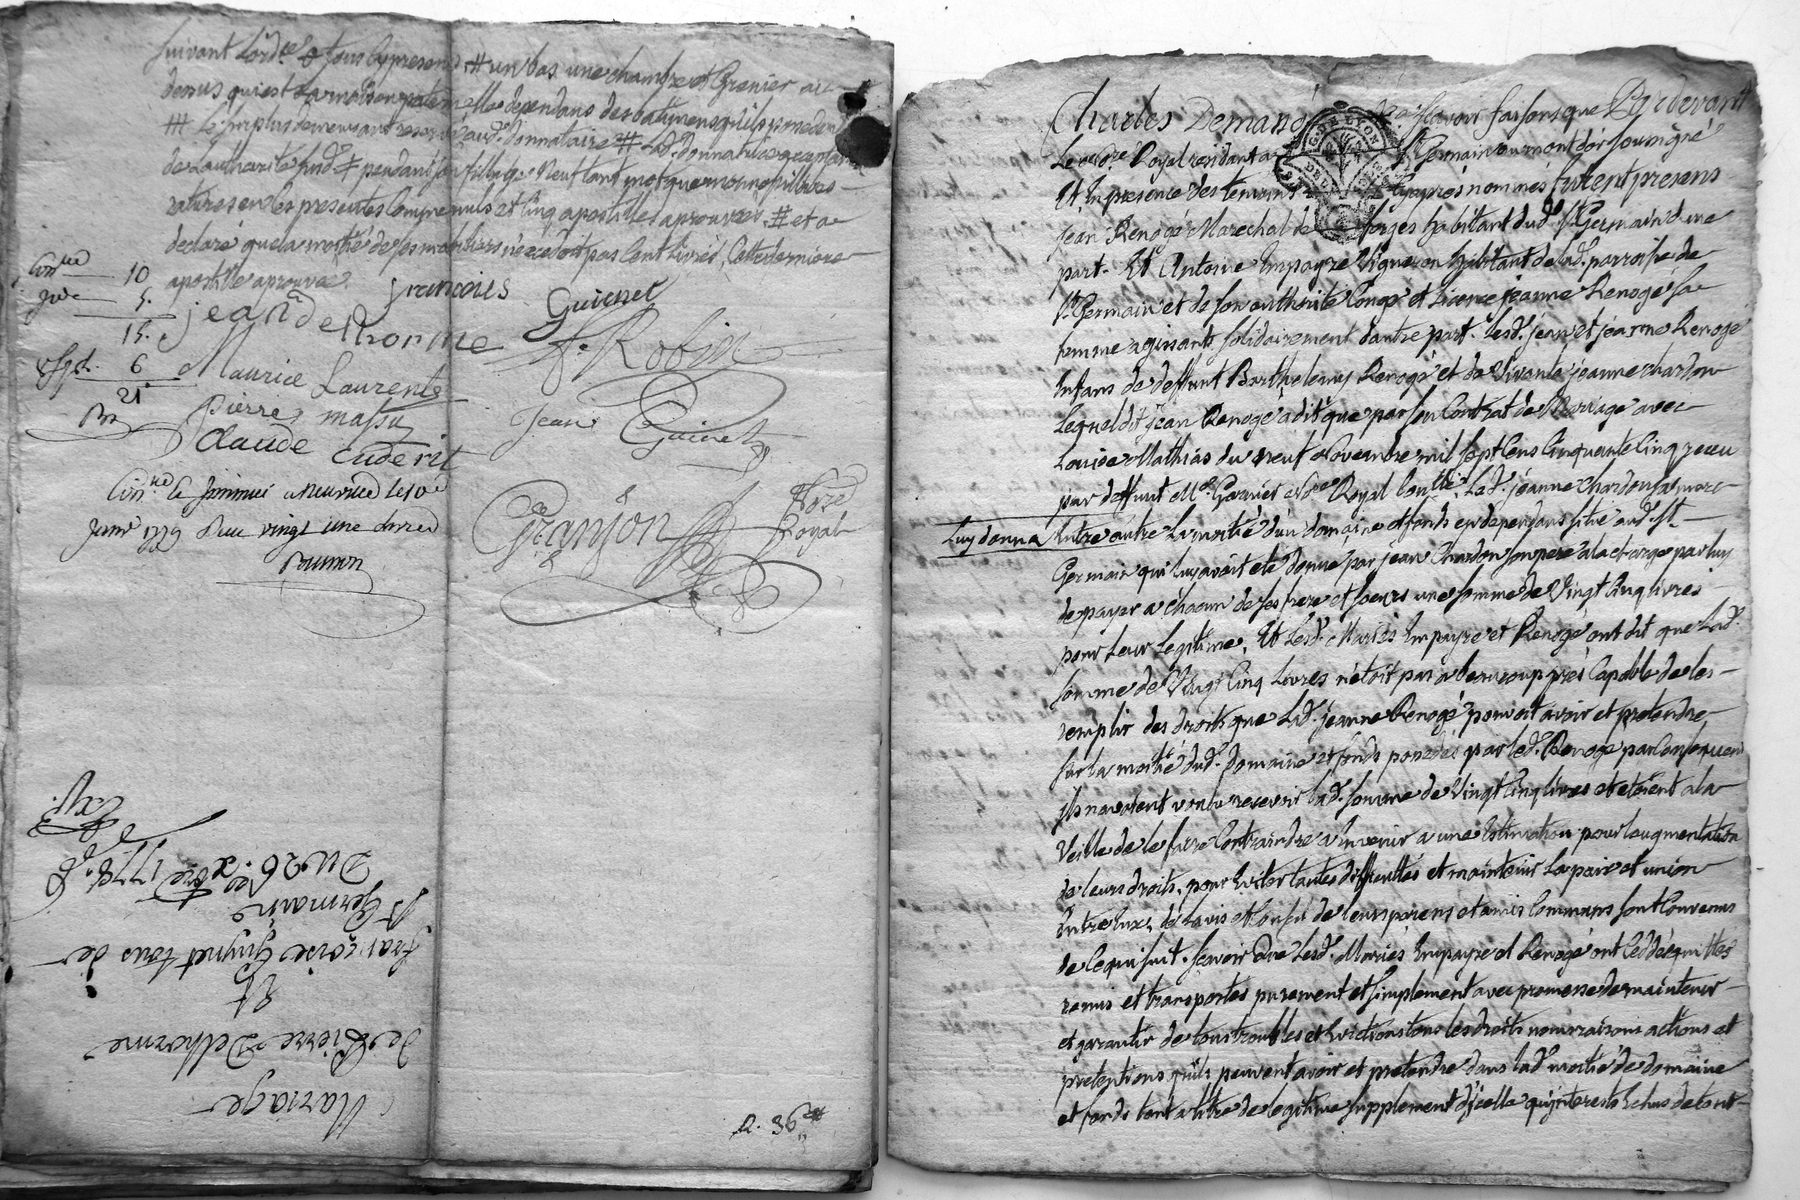 suivant Lord.ce Et sous les presens # un bas une chambre et Grenier au
dessus qui est La maison paternelle dependans des batiments qu'ils possedent
# Le surplus demeurant reservé aud. donnataire #
de Lauthorité susd. # pendant son
ratures en des presentes Comprennuls et Cinq apostilles aprouvées. # et a
declaré que la moitié de ses mobiliers n'excedoit pas Cent Livres, Cette derniere
apostille aprouvée
10
5.
15.
6
21
françois Guienet
jean de Lhorme
Robin
Maurice Laurent
Pierre massu
Jean Guinet
Claude
Granjon
Nore Royal
Janv. 1779 Reçu vingt une livres
Mariage
de Pierre Delhorme
Et
françoise Guynet tous de
St Germain
Du 26. xbre 1778.
Exp.
R. 36
Pardevant
Charles Demand
Le no.re Royal residant a St Germain au mont d'or soussigné
Et En presence des temoins cy apres nommés furent presens
jean Renogé Marechal de forges habitant dud. St Germain d'une
part. Et Antoine Empayre Vigneron habitant de lad. parroisse de
St Germain et de son authorité Congé et Licence jeanne Renogé sa
femme agissants solidairement d'autre part. Lesd. jean et jeanne Renogé
Enfans de deffunt Barthelemy Renogé et de Vivante jeanne chardon
Lequel dit jean Renogé a dit que par son Contrat de Mariage avec
Louise Mathias du neuf Novembre mil sept Cens Cinquante Cinq receu
par deffunt M.e Garnier No.re Royal Lad. jeanne Chardon sa mere
Luy donna Entre autre La moitié d'un domaine et fonds en dependans situé aud. St
Germain qui luy avoit eté donné par jean Chardon son pere a la charge par luy
de payer a chacun de ses frere et soeurs une somme de Vingt Cinq livres
pour Leur Legitime, Et Lesd. Mariés Empayre et Renogé ont dit que Lad.
somme de Vingt Cinq Livres n'etoit pas a beaucoup près Capable de les
remplir des droits que Lad. jeanne Renogé pouvoit avoir et pretendre
sur la moitié dud. domaine et fonds possedés par led. Renogé par Consequent
ils n'avoient voulu recevoir lad. somme de Vingt Cinq livres et etoient a la
Veille de le faire Contraindre a En venir a une Estimation pour l'augmentation
de leurs droits, pour Eviter toutes difficultés et maintenir La paix et union
Entre Eux, de Lavis et Conseil de leurs parens et amis Communs sont Convenus
de Ce qui suit. sçavoir Que Lesd. Mariés Empayre et Renogé ont Cédés quittés
remis et transportés purement et simplement avec promesse de maintenir
et garantir de tous troubles et Evictions tous les droits noms raisons actions et
pretentions qu'ils peuvent avoir et pretendre dans lad. moitié de domaine
et fonds tant a titre de legitime supplement d'jcelle qu'interests Echus de tout